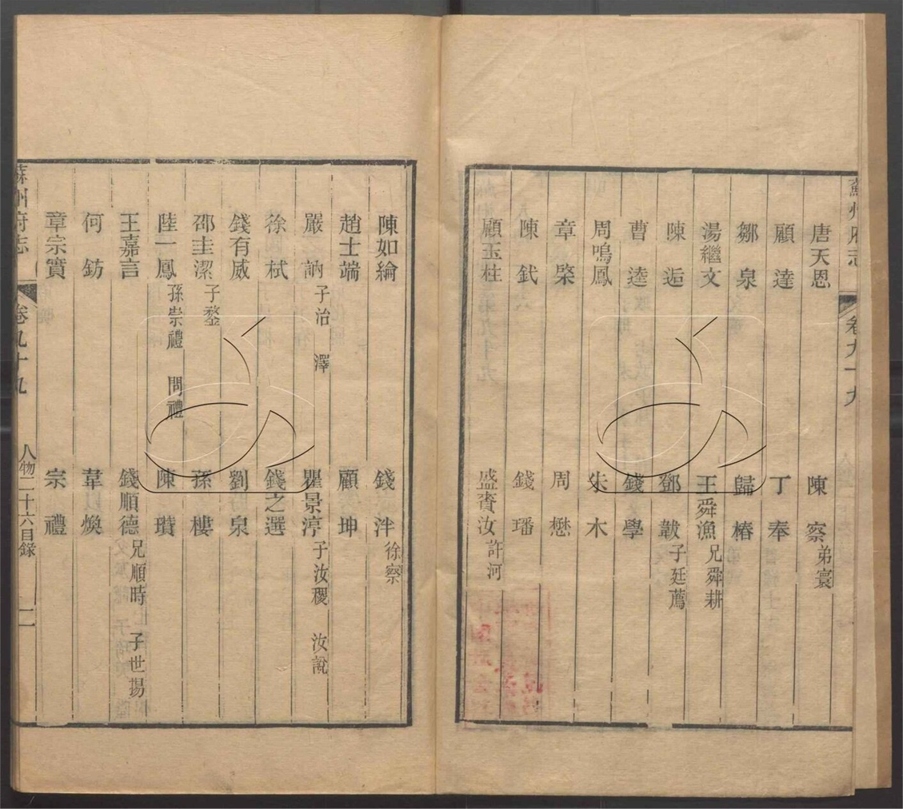 蘇州府志 卷九十九
唐天恩 陳察弟寰
顧達 丁奉
鄒泉 歸椿
湯繼文 王舜漁兄舜耕
陳逅 鄧韍子廷薦
曹逵 錢學
周鳴鳳 朱木
章棨 周懋
陳鈛 錢璠
顧玉柱 盛賚汝許河
陳如綸 錢泮徐察
趙士端 顧坤
嚴訥子治 澤 瞿景淳子汝稷 汝說
徐栻 錢之選
錢有威 劉泉
邵圭潔子鏊 孫樓
陸一鳳孫崇禮 問禮 陳瓚
王嘉言 錢順德兄順時 子世揚
何鈁 韋煥
章宗實 宗禮
蘇州府志 卷九十九 人物二十六目錄 二